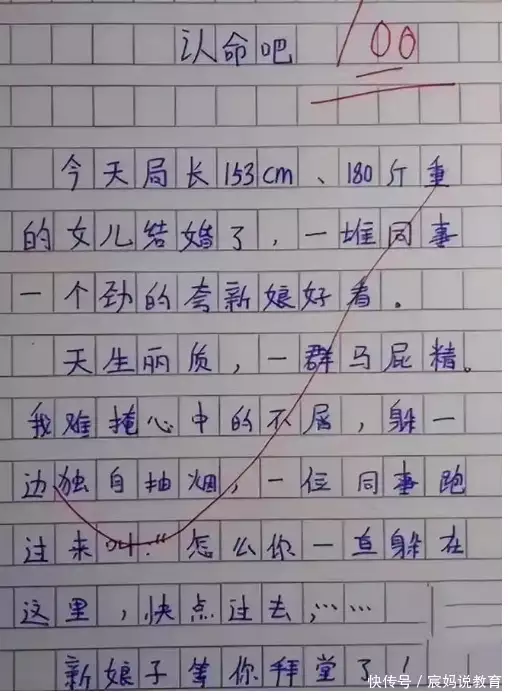 认命吧 100
今天局长153cm、180斤重
的女儿结婚了，一堆同事
一个劲的夸新娘好看。
天生丽质，一群马屁精。
我难掩心中的不屑，躲一
边独自抽烟，一位同事跑
过来叫："怎么你一直躲在
这里，快点过去，……
新娘子等你拜堂了！
快传号／宸妈说教育